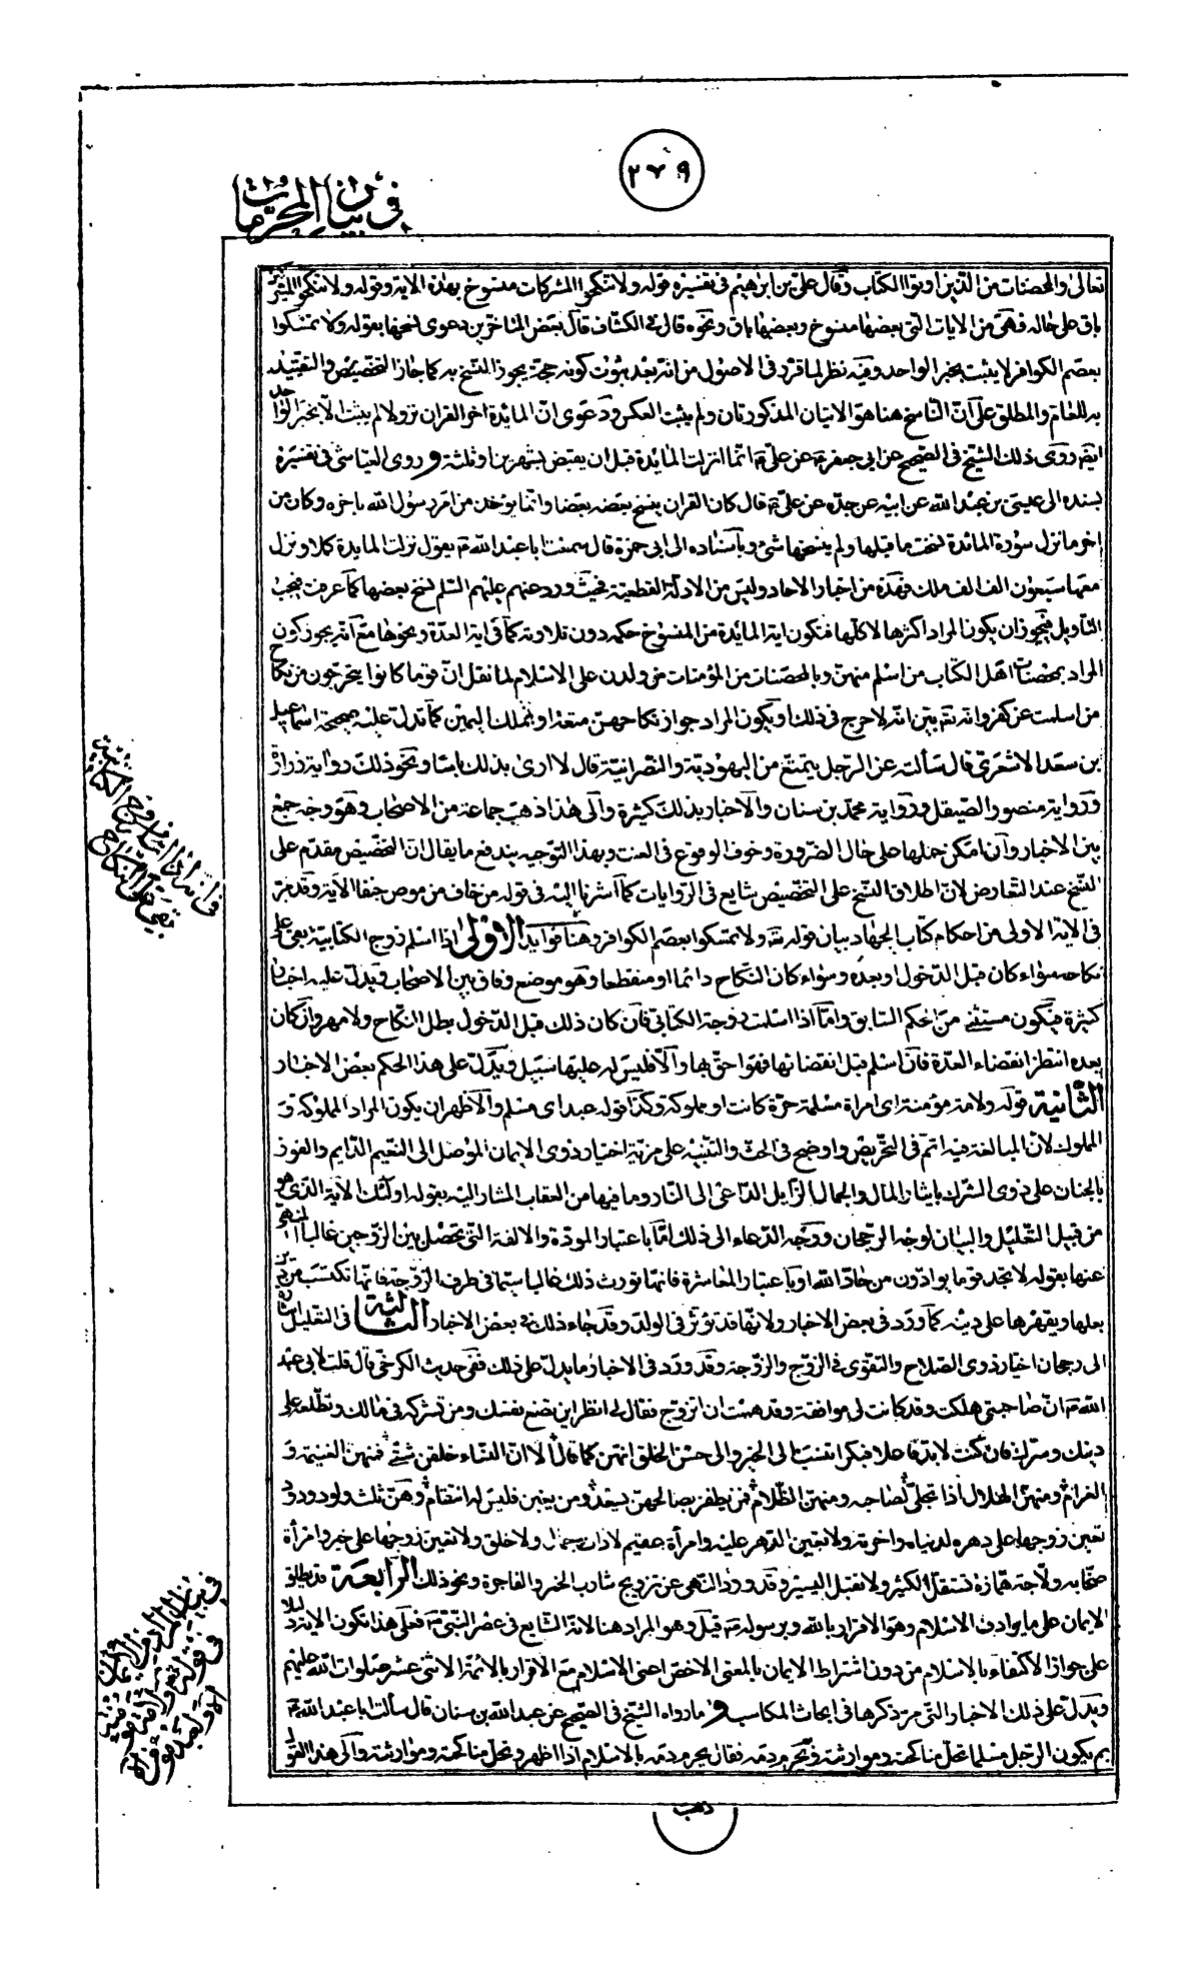 ٢٧٩
في بيان المحرمات
تعالى والمحصنات من الذين اوتوا الكتاب وقال علي بن ابرهيم في تفسيره قوله ولا تنكحوا المشركات منسوخ بهذه الاية وقوله ولا تنكحوا المشركين
باق على حاله فهي من الايات التي بعضها منسوخ وبعضها باق ونحوه قال في الكشاف قال بعض المتاخرين دعوى نسخها بقوله ولا تمسكوا
بعصم الكوافر لا يثبت بخبر الواحد وفيه نظر لما قرر في الاصول من انه بعد ثبوت كونه حجة يجوز النسخ به كما جاز التخصيص والتقييد
به للعام والمطلق على ان الناسخ هنا هو الايتان المذكورتان ولم يثبت العكس ودعوى ان المائدة اخر القران نزولا لم يثبت الا بخبر الواحد
ايضا روى ذلك الشيخ في الصحيح عن ابي جعفر ع عن علي ع انما انزلت المائدة قبل ان يقبض بشهرين او ثلثة وروى العياشي في تفسيره
بسنده الى عيسى بن عبد الله عن ابيه عن جده عن علي ع قال كان القران ينسخ بعضه بعضا وانما يوخذ من امر رسول الله باخره وكان من
اخر ما نزل سورة المائدة نسخت ما قبلها ولم ينسخها شئ وباسناده الى ابي حمزة قال سمعت ابا عبد الله ع يقول نزلت المايدة كملا ونزل
معها سبعون الف الف ملك فهذه من اخبار الاحاد وليس من الادلة القطعية فحيث ورد عنهم عليهم السلم نسخ بعضها كما عرفت فيجب
التاويل فيجوز ان يكون المراد اكثرها لا كلها فتكون اية المائدة من المنسوخ حكمه دون تلاوته كما في اية العدة ونحوها مع انه يجوز كون
المراد بمحصنات اهل الكتاب من اسلم منهن وبالمحصنات من المؤمنات من ولدن على الاسلام لما نقل ان قوما كانوا يتحرجون من نكاح
من اسلمت عن كفر وانه تع بين انه لا حرج في ذلك او يكون المراد جواز نكاحهن متعة او بملك اليمين كما تدل عليه صحيحة اسماعيل
بن سعد الاشعري قال سألته عن الرجل يتمتع من اليهودية والنصرانية قال لا ارى بذلك باسا ونحو ذلك رواية زرارة
ورواية منصور الصيقل ورواية محمد بن سنان والاخبار بذلك كثيرة والى هذا ذهب جماعة من الاصحاب وهو وجه جمع
بين الاخبار وان امكن حملها على حال الضرورة وخوف الوقوع في العنت وبهذا التوجيه يندفع ما يقال ان التخصيص مقدم على
النسخ عند التعارض لان اطلاق النسخ على التخصيص شايع في الروايات كما اشرنا اليه في قوله من خاف من موص جنفا الاية وقد مر
في الاية الاولى من احكام كتاب الجهاد بيان قوله تع ولا تمسكوا بعصم الكوافر وهنا فوايد الاولى اذا اسلم زوج الكتابية بقي على
نكاحه سواء كان قبل الدخول او بعده وسواء كان النكاح دائما او منقطعا وهو موضع وفاق بين الاصحاب ويدل عليه اخبار
كثيرة فيكون مستثنى من الحكم السابق واما اذا اسلمت زوجة الكتابي فان كان ذلك قبل الدخول بطل النكاح ولا مهر وان كان
بعده انتظر انقضاء العدة فان اسلم قبل انقضائها فهو احق بها والا فليس له عليها سبيل ويدل على هذا الحكم بعض الاخبار
الثانية قوله ولامة مؤمنة اي امراة مسلمة حرة كانت او مملوكة وكذا قوله عبد اي مسلم والاظهر ان يكون المراد المملوكة و
المملوك لان المبالغة فيه اتم في التحريص واوضح في الحث والتنبيه على مزية اختيار ذوي الايمان الموصل الى النعيم الدايم والفوز
بالجنان على ذوي الشرك بايثار المال والجمال الزايل الداعي الى النار وما فيها من العقاب المشار اليه بقوله اولئك الاية الذي هو
من قبيل التعليل والبيان لوجه الرجحان ووجه الدعاء الى ذلك اما باعتبار المودة والالفة التي تحصل بين الزوجين غالبا المنهي
عنها بقوله لا تجد قوما يوادون من حاد الله او باعتبار المعاشرة فانها تورث ذلك غالبا سيما في طرف الزوجة فانها تكتسب من دين
بعلها ويقهرها على دينه كما ورد في بعض الاخبار ولانها قد تؤثر في الولد وقد جاء ذلك في بعض الاخبار الثالثة في التعليل
الى رجحان اختيار ذوي الصلاح والتقوى في الزوج والزوجة وقد ورد في الاخبار ما يدل على ذلك ففي حديث الكرخي قال قلت لابي عبد
الله ع ان صاحبتي هلكت وقد كانت لي موافقة وقد هممت ان اتزوج فقال لي انظر اين تضع نفسك ومن تشركه في مالك وتطلعه على
دينك وسرك فان كنت لا بد فاعلا فبكرا تنسب الى الخير والى حسن الخلق انهن كما قال الا ان النساء خلقن شتى فمنهن الغنيمة و
الغرام ومنهن الهلال اذا تجلى لصاحبه ومنهن الظلام فمن يظفر بصالحهن يسعد ومن يغبن فليس له انتقام وهن ثلث ولود ودود
تعين زوجها على دهره لدنياه واخرته ولا تعين الدهر عليه وامرأة عقيم لا ذات جمال ولا خلق ولا تعين زوجها على خير وامرأة
صخابة ولاجة همازة تستقل الكثير ولا تقبل اليسير وقد ورد النهي عن تزويج شارب الخمر والفاجرة ونحو ذلك الرابعة قد يطلق
الايمان على ما يوادف الاسلام وهو الاقرار بالله وبرسوله ص قيل وهو المراد هنا لانه الشايع في عصر النبي ص فعلى هذا تكون الاية دليلا
على جواز الاكتفاء بالاسلام من دون اشتراط الايمان بالمعنى الاخص اعني الاسلام مع الاقرار بالائمة الاثني عشر صلوات الله عليهم
ويدل على ذلك الاخبار التي مر ذكرها في ابحاث المكاسب وما رواه الشيخ في الصحيح عن عبد الله بن سنان قال سالت ابا عبد الله ع
بم يكون الرجل مسلما تحل مناكحته وموارثته ويحرم دمه فقال يحرم دمه بالاسلام اذا اظهر وتحل مناكحته وموارثته والى هذا القول
ذهب
في انه اذا اسلم زوج الكتابية
بقي على النكاح